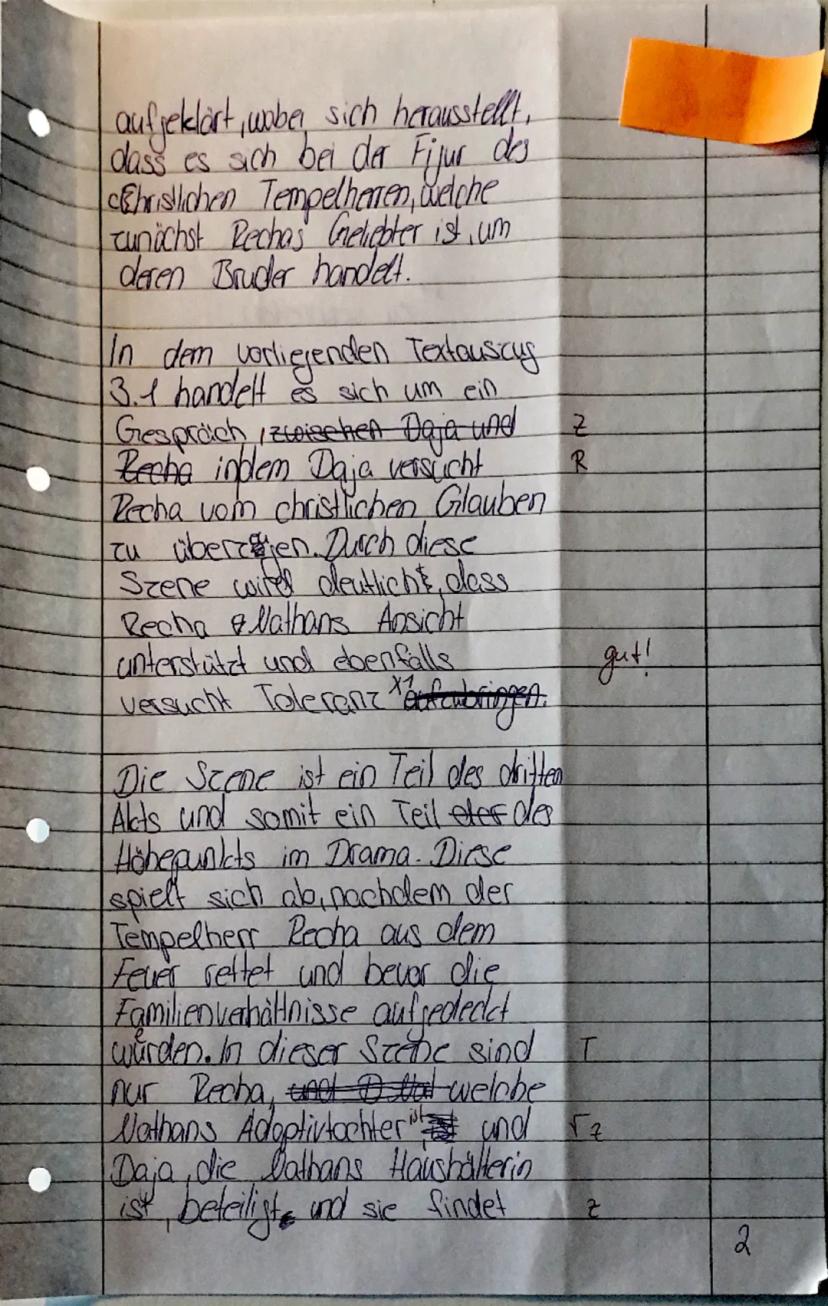 aufgeklärt, wobei sich herausstellt,
dass es sich bei der Figur des
christlichen Tempelherren, welche
zunächst Rechas Geliebter ist, um
deren Bruder handelt.
In dem vorliegenden Textauszug
3.1 handelt es sich um ein
Gespräch, zwischen Daja und Z
Recha indem Daja versucht R
Recha vom christlichen Glauben
zu überzeugen. Durch diese
Szene wird deutlich, dass
Recha Nathans Ansicht
unterstützt und ebenfalls gut!
versucht Toleranz x1 aufzubringen.
Die Szene ist ein Teil des dritten
Akts und somit ein Teil des
Höhepunkts im Drama. Diese
spielt sich ab, nachdem der
Tempelherr Recha aus dem
Feuer rettet und bevor die
Familienverhältnisse aufgedeckt
würden. In dieser Szene sind T
nur Recha, und welche
Nathans Adoptivtochter ist und √z
Daja, die Nathans Haushälterin
ist, beteiligt und sie findet z
2